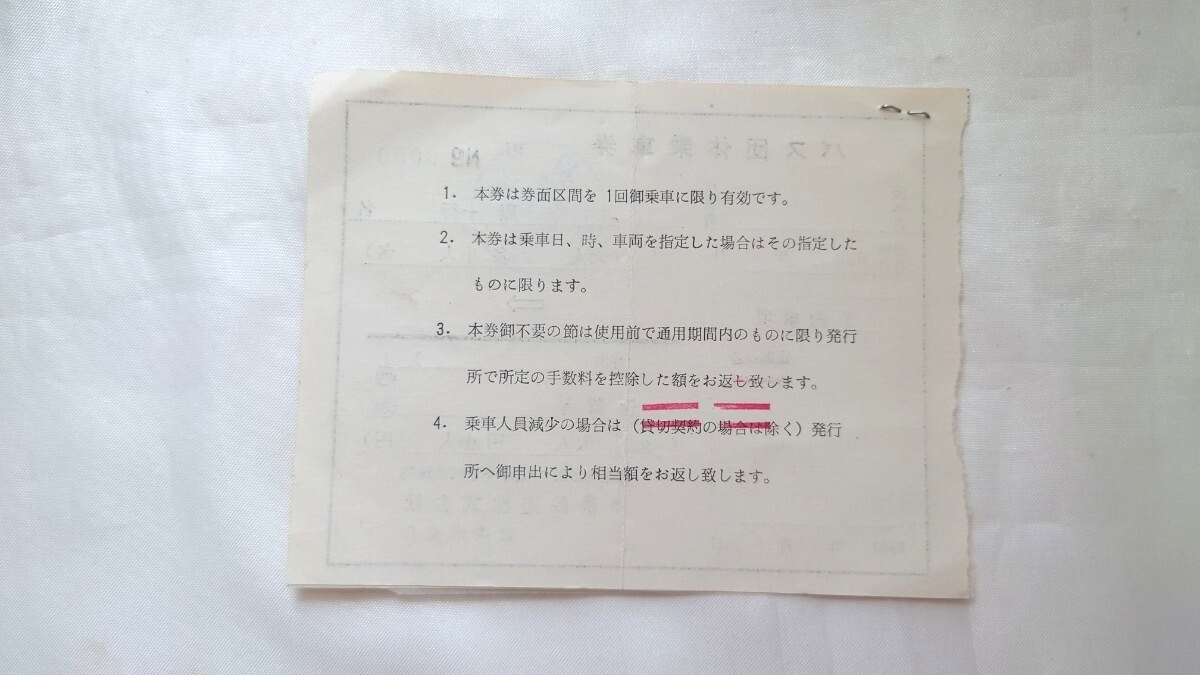 バス団体乗車券
No
1. 本券は券面区間を 1回御乗車に限り有効です。
2. 本券は乗車日、時、車両を指定した場合はその指定した
ものに限ります。
3. 本券御不要の節は使用前で通用期間内のものに限り発行
所で所定の手数料を控除した額をお返し致します。
4. 乗車人員減少の場合は(貸切契約の場合は除く)発行
所へ御申出により相当額をお返し致します。